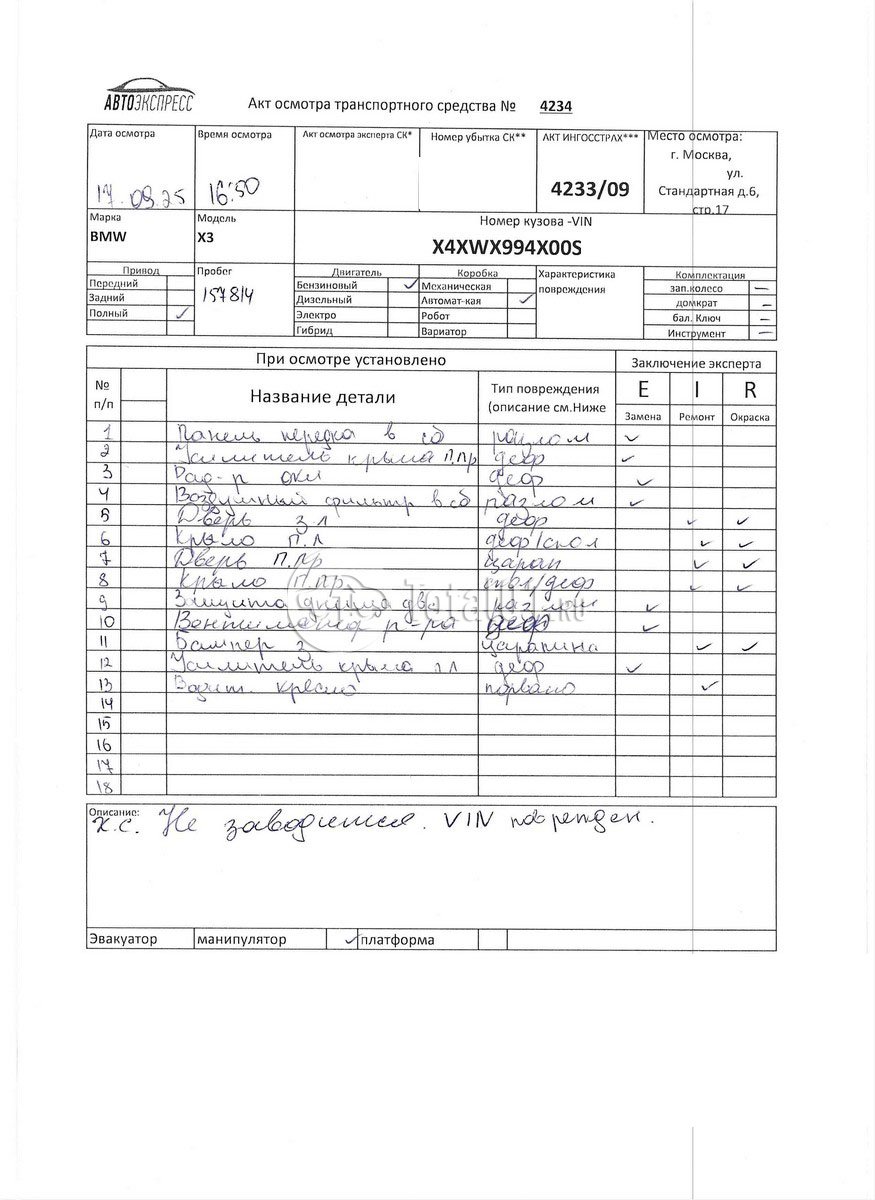 АВТОЭКСПРЕСС
Акт осмотра транспортного средства № 4234
Дата осмотра
17.09.25
Время осмотра
16:50
Акт осмотра эксперта СК*
Номер убытка СК**
АКТ ИНГОССТРАХ***
4233/09
Место осмотра:
г. Москва,
ул.
Стандартная д.6,
стр.17
Марка
BMW
Модель
X3
Номер кузова -VIN
X4XWX994X00S
Привод
Передний
Задний
Полный ✓
Пробег
157814
Двигатель
Бензиновый ✓
Дизельный
Электро
Гибрид
Коробка
Механическая
Автомат-кая ✓
Робот
Вариатор
Характеристика
повреждения
Комплектация
зап.колесо —
домкрат —
бал. Ключ —
Инструмент —
При осмотре установлено
Заключение эксперта
№
п/п
Название детали
Тип повреждения
(описание см.Ниже
E I R
Замена Ремонт Окраска
1 Панель передка в сб разлом ✓
2 Усилитель крыла п.пр деф ✓
3 Рад-р охл деф ✓
4 Воздушный фильтр в сб разлом ✓
5 Дверь з л деф ✓ ✓
6 Крыло п.л деф/скол ✓ ✓
7 Дверь п.пр царап ✓ ✓
8 Крыло п.пр скол/деф ✓ ✓
9 Защита днища две разлом ✓
10 Вентилятор р-ра деф ✓
11 Бампер з царапина ✓ ✓
12 Усилитель крыла п л деф ✓
13 Водит. кресло порвано ✓
14
15
16
17
18
Описание:
х.с. Не заводится. VIN поврежден.
Эвакуатор манипулятор ✓ платформа